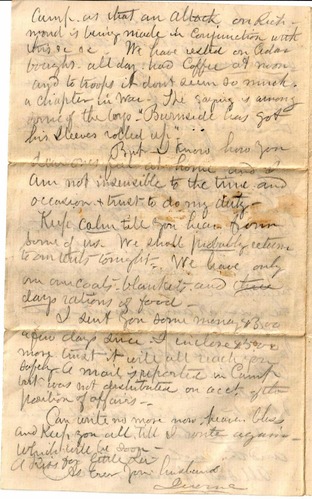 Camp as that an Attack on Rich-
mond is being made in Conjunction with
this &c &c. We have rested on Cedar
boughs all day. had Coffee at noon
and to troops it dont seem so much
a chapter in War. The saying is among
some of the boys "Burnside has got
his sleeves rolled up"
But I know how you
feel at home and I
am not insensible to the time and
occasion & trust to do my duty.
Keep calm till you hear from
some of us. We shall probably return
to our tents tonight. We have only
our overcoats blankets and three
days rations of food.
I sent you some money
a few days since. I enclose
more trust it will all reach you
safely. A mail is reported in Camp
but was not distributed on acct. of the
position of affairs.
Can write no more now. Heaven bless
and Keep you all till I write again
Which will be soon.
A Kiss for little
As Ever Your husband